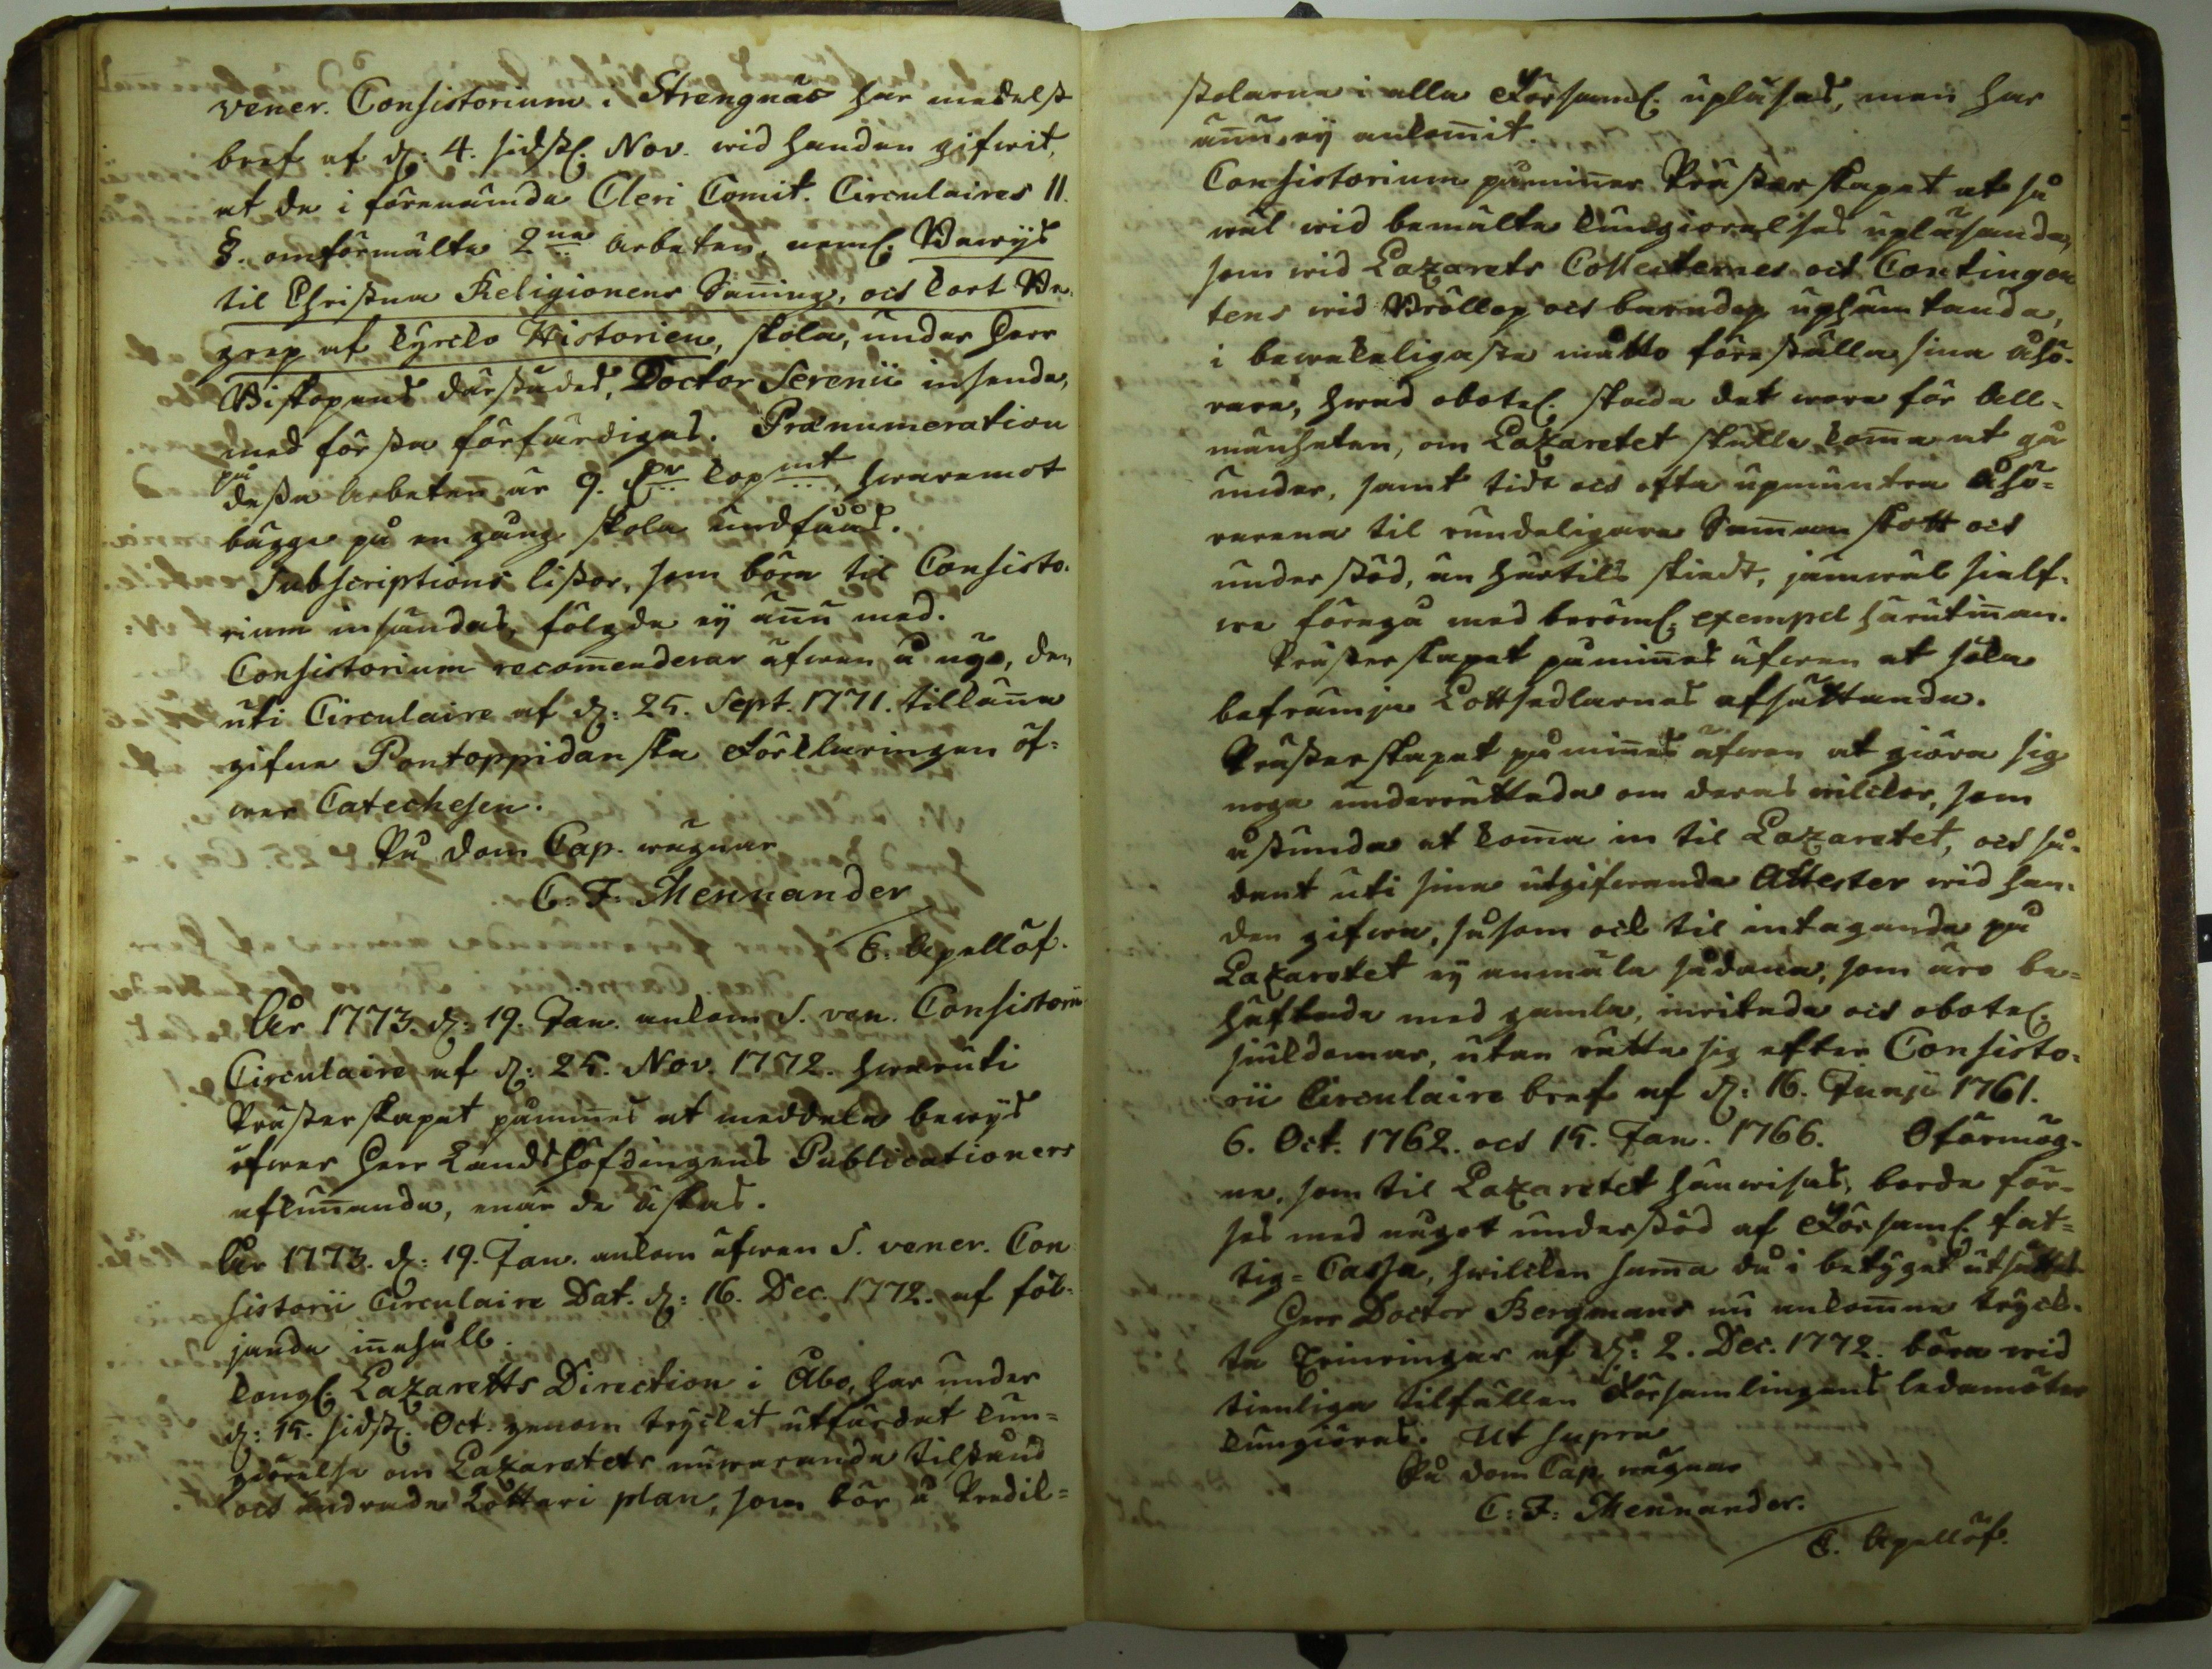 vener. Consistorium i Strengnäs har medelst
bref af d: 4. sidstl. Nov. wid handen gifwit,
at de i förenämda Cleri Comit. Circulaires 11.
§. omförmälte 2ne arbeten, neml. Bewijs
til Christna Religionens Sanning, och kort Be-
grep af kyrko Historien, skola, under Herr
Biskopens därstädes, Doctor Serenii inseende,
med första färdigas. Prænumeration
på
dessa arbeten är 9. dr kopmt, hwaremot
bägge på en gång skola undfåås.
Subscriptions listor, som böra til Consisto-
rium insändas, fölgde ej ännu med.
Consistorium recommenderar äfwen å nyo, den
uti Circulaire af d: 25. Sept. 1771. tillkänna
gifne Pontoppidanska Förklaringen öf-
wer Catechesen.
På Dom Cap. wägnar
C. F. Mennander
C. Apellöf.
År 1773. d: 19. Jan. ankom S. ven. Consistorii
Circulaire af d: 25. Nov. 1772. hwaruti
Prästerskapet påminnes at meddela bewijs
öfwer Herr Landshöfdingens Publicationers
afkunnande, enär de äskas.
År 1773. d: 19. Jan. ankom äfwen S. vener. Con
sistorii Circulaire Dat. d: 16. Dec. 1772. af föl-
jande innehåll.
Kongl. Lazaretts Direction i Åbo, har under
d: 15. sidstl. Oct. genom trycket utfärdat kun-
giörelse om Lazaretets nuwarande tilstånd
och ändrade Lotteri plan, som bör å Predik-
stolarne i alla Församl. upläsas, men har
ännu ej ankommit.
Consistorium påminner Prästerskapet at så
wäl wid bemälte kungiörelses upläsande,
som wid Lazarets Collecternes och Contingen
tens wid Bröllop och barndop uphämtande,
i beweklegaste måtto föreställa sina åhö-
rare, hwad obotel. skada det wore för All-
mänheten, om Lazaretet skulle komma at gå
under, samt tidt och ofta upmuntra Åhö-
rarena til rundeligare Sammanskott och
understöd, än härtils skiedt, jämwäl sielf-
we föregå med berömt. exempel härutinnan.
Prästerskapet påminnes äfwen at söka
befrämja Lottsedlarnes afsättande.
Prästerskapet påminnes äfwen at giöra sig
noga underrättade om deras wilckor, som
åstunda at komma in til Lazaretet, och så-
dant uti sina utgifwande Attester wid han-
den gifwa, såsom ock til intagande på
Lazaretet ej anmäla sådana, som äro be-
häftade med gamla, inritade och obotel.
siukdomar, utan rätta sig efter Consisto-
rii Circulaire bref af d: 16. Junii 1761.
6. Oct. 1762. och 15. Jan. 1766. Oförmög-
ne, som til Lazaretet hänwisas, borde för-
ses med något understöd af Församl. fat-
tig-Cassa, hwilcken summa då i betyget utsättes.
Herr Doctor Bergmans nu ankomne tryck-
ta Erinringar af d: 2. Dec. 1772. böra wid
tienliga tilfällen Församlingens ledamöter
kungiöras. Ut supra
På Dom Cap. wägnar
C: F: Mennander.
C. Apellöf.